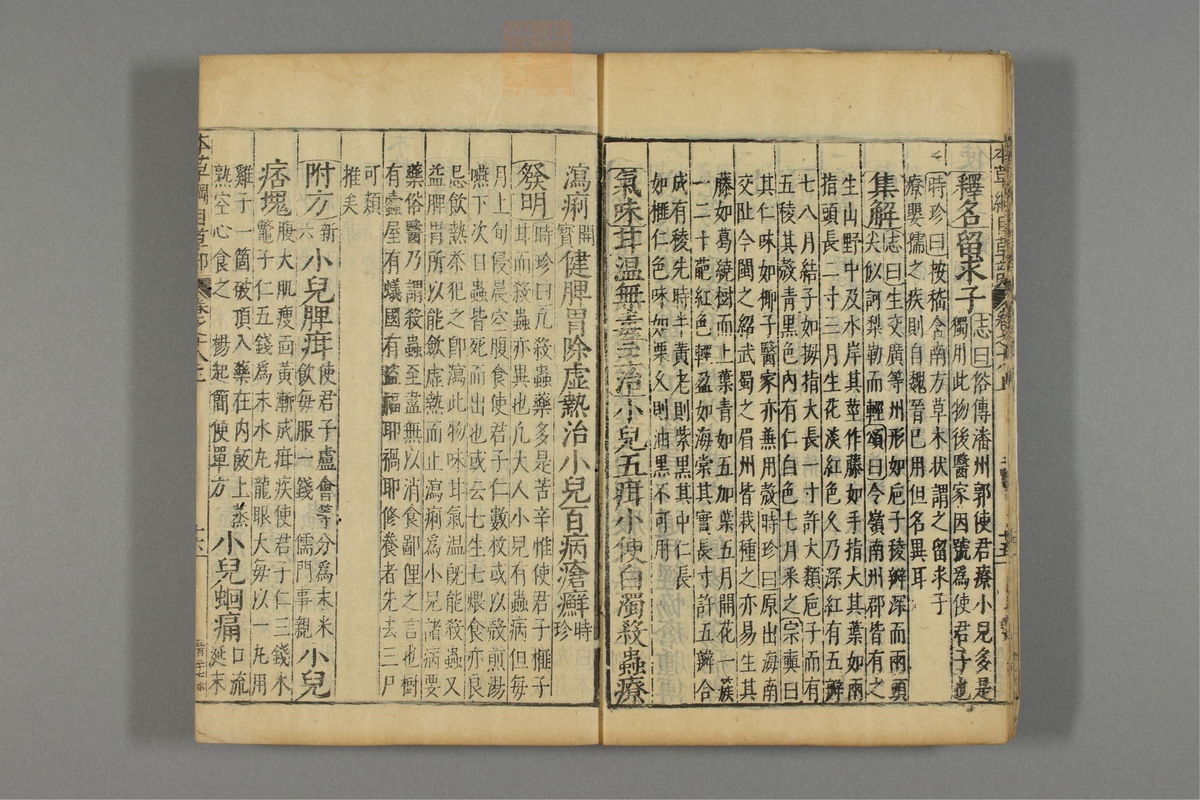 本草綱目草部 卷之十八上
釋名留求子志曰俗傳潘州郭使君療小兒多是
獨用此物後醫家因號爲使君子也
時珍曰按嵇含南方草木狀謂之留求子
療嬰孺之疾則自魏晉已用但名異耳
集解志曰生交廣等州形如巵子稜瓣深而兩頭
尖似訶梨勒而輕頌曰今嶺南州郡皆有之
生山野中及水岸其莖作藤如手指大其葉如兩
指頭長二寸三月生花淡紅色久乃深紅有五瓣
七八月結子如拇指大長一寸許大類巵子而有
五稜其殼青黑色內有仁白色七月釆之宗奭曰
其仁味如椰子醫家亦兼用殼時珍曰原出海南
交趾今閩之紹武蜀之眉州皆栽種之亦易生其
藤如葛繞樹而上葉青如五加葉五月開花一簇
一二十葩紅色輕盈如海棠其實長寸許五瓣合
成有稜先時半黃老則紫黑其中仁長
如榧仁色味如栗久則油黑不可用
氣味甘溫無毒主治小兒五疳小便白濁殺蟲療
瀉痢開寶健脾胃除虛熱治小兒百病瘡癬時珍
發明時珍曰凡殺蟲藥多是苦辛惟使君子榧子
甘而殺蟲亦異也凡大人小兒有蟲病但每
月上旬侵晨空腹食使君子仁數枚或以殼煎湯
嚥下次日蟲皆死而出也或云七生七煨食亦良
忌飲熱茶犯之卽瀉此物味甘氣溫旣能殺蟲又
益脾胃所以能斂虛熱而止瀉痢爲小兒諸病要
藥俗醫乃謂殺蟲至盡無以消食鄙俚之言也樹
有蠹屋有蟻國有盜福耶禍耶修養者先去三尸
可類
推矣
附方新六小兒脾疳使君子盧會等分爲末米
飲每服一錢儒門事親小兒
痞塊腹大肌瘦面黃漸成疳疾使君子仁三錢木
鱉子仁五錢爲末水丸龍眼大每以一丸用
雞子一箇破頂入藥在內飯上蒸
熟空心食之 楊起簡便單方小兒蛔痛口流
涎末
本草綱目草部 卷之十八上